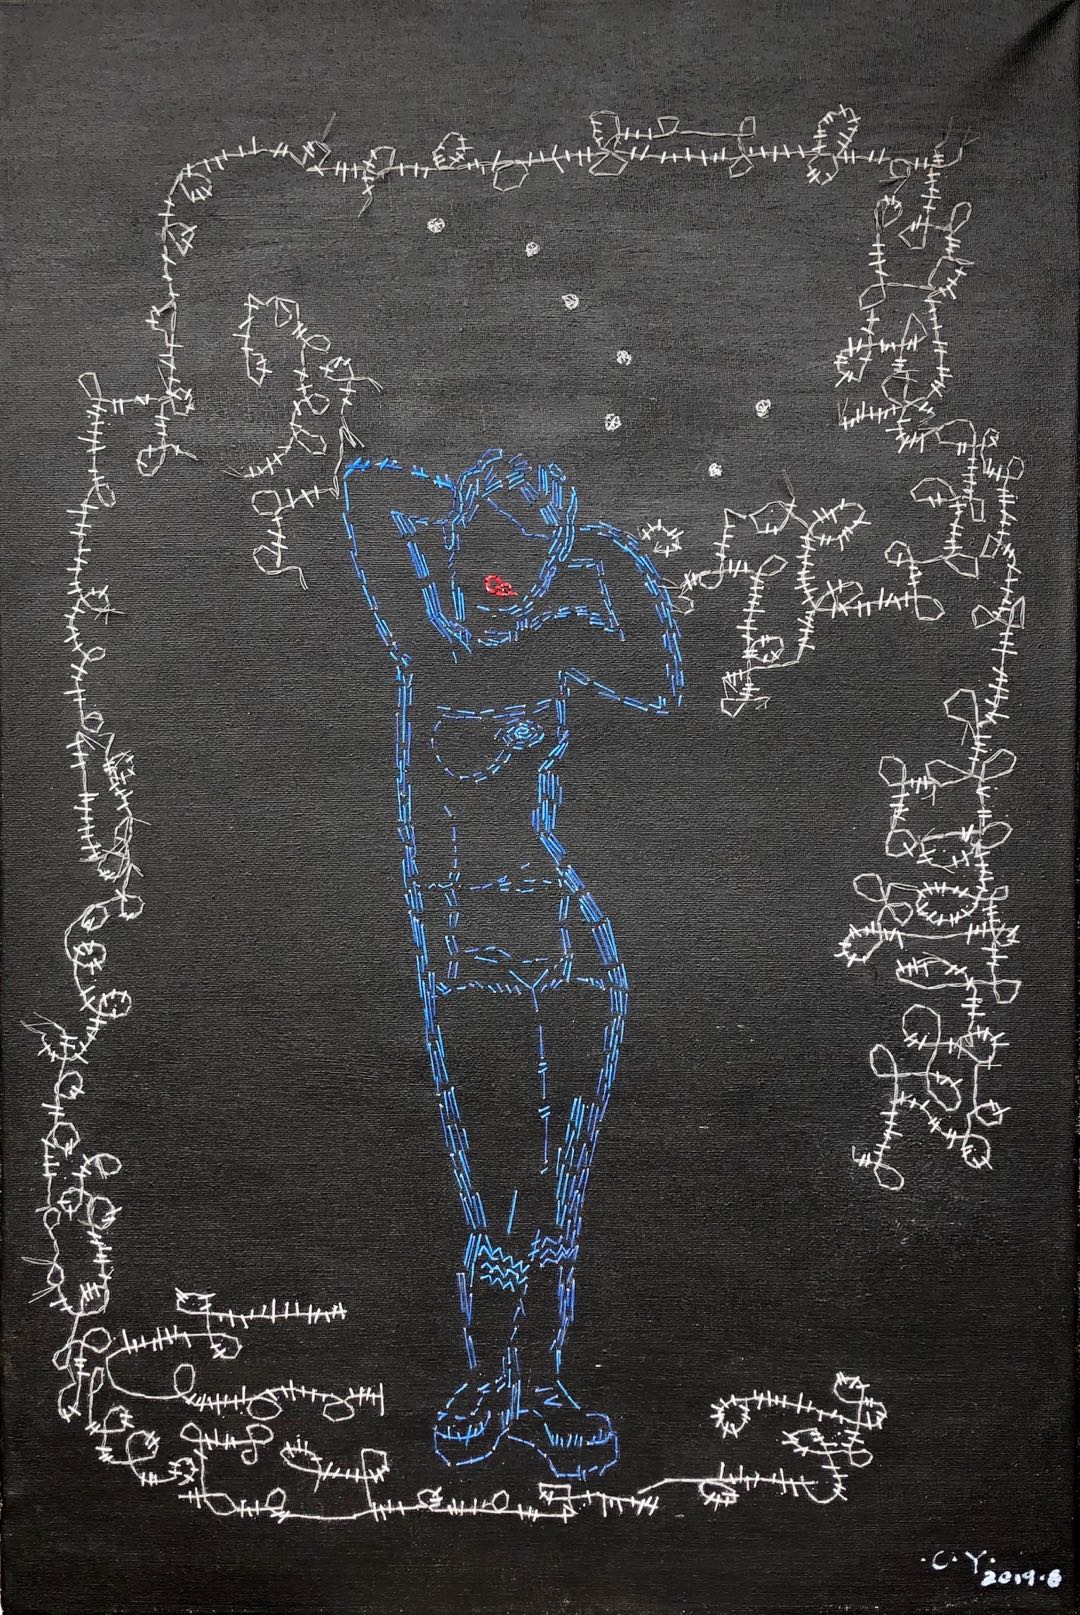 ·C·Y·
2019·6